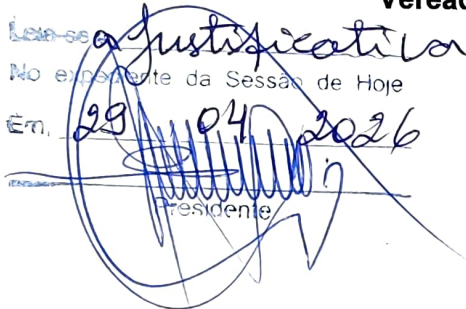 Veread
Leia-se a Justificativa
No expediente da Sessão de Hoje
Em, 29 04 2026
Presidente